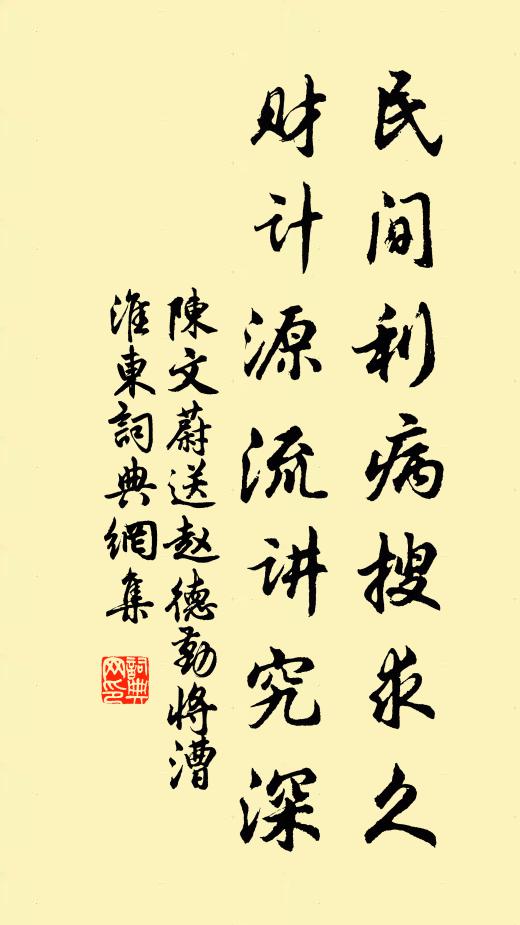 民间利病搜求久
财计源流讲究深
陳文蔚送赵德勤将漕
淮東詞典網集
詞典网印